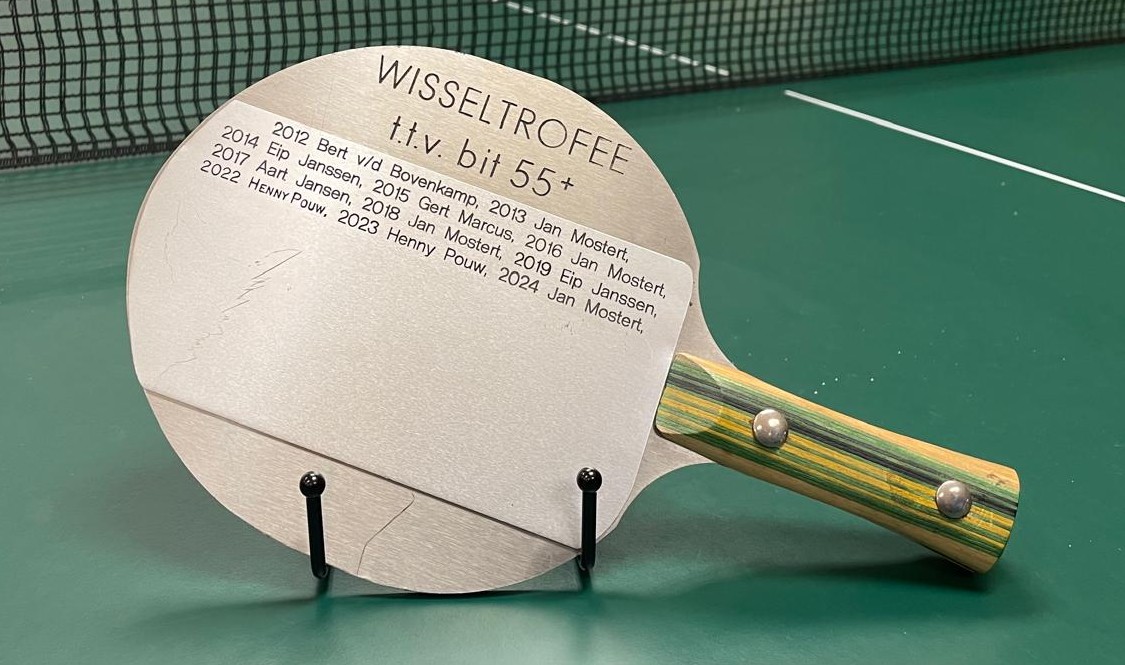 WISSELTROFEE
t.t.v. bit 55+
2012 Bert v/d Bovenkamp, 2013 Jan Mostert,
2014 Eip Janssen, 2015 Gert Marcus, 2016 Jan Mostert,
2017 Aart Jansen, 2018 Jan Mostert, 2019 Eip Janssen,
2022 HENNY POUW, 2023 Henny Pouw, 2024 Jan Mostert,